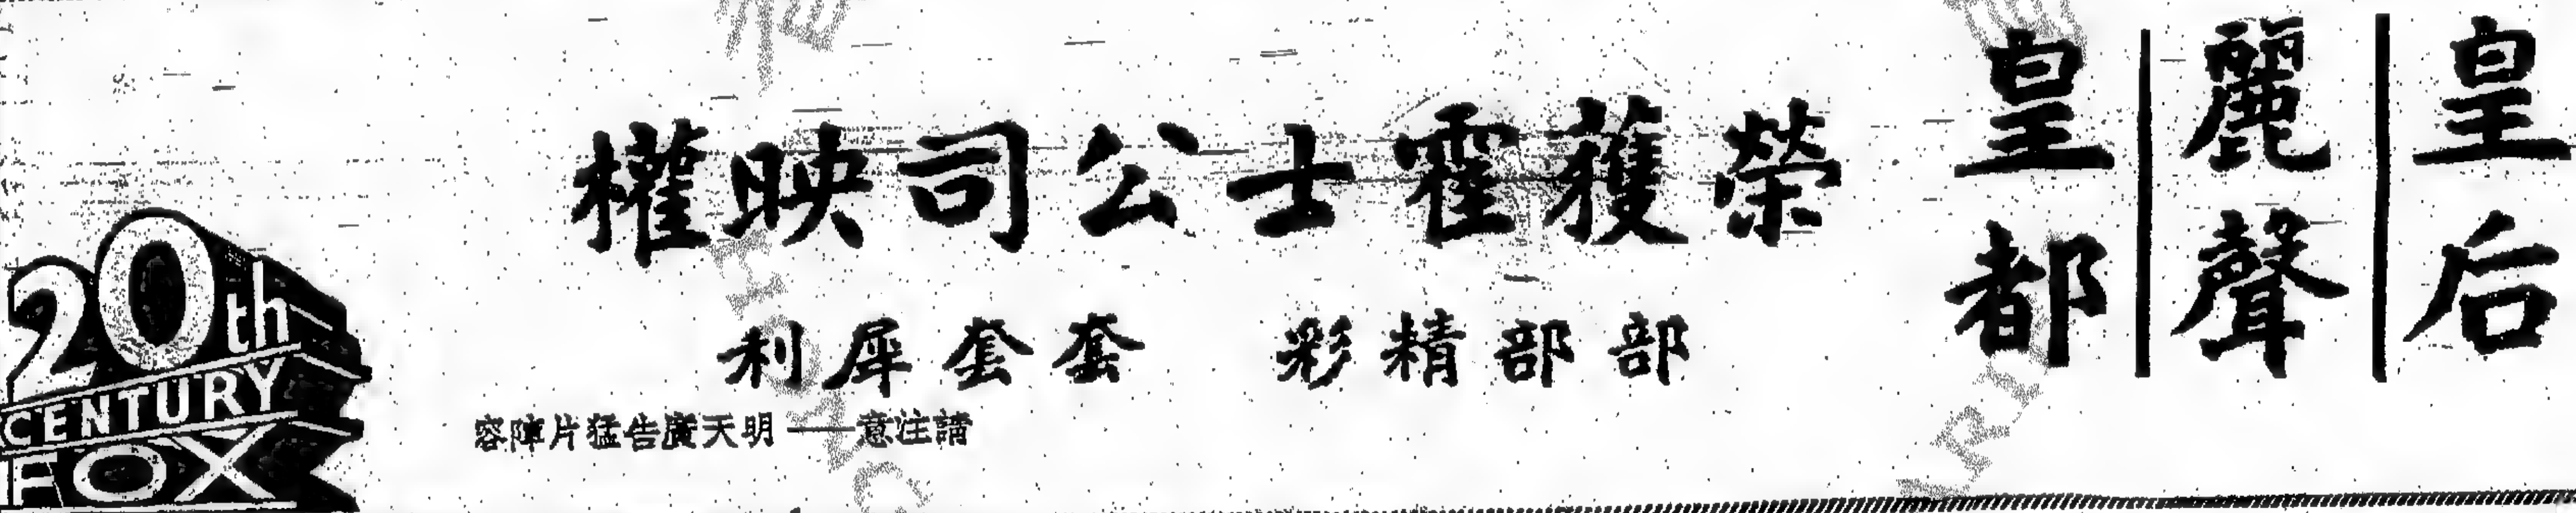 皇后
麗聲
皇都
榮獲霍士公司映權
部部精彩 套套犀利
請注意——明天廣告猛片陣容
20th
CENTURY
FOX